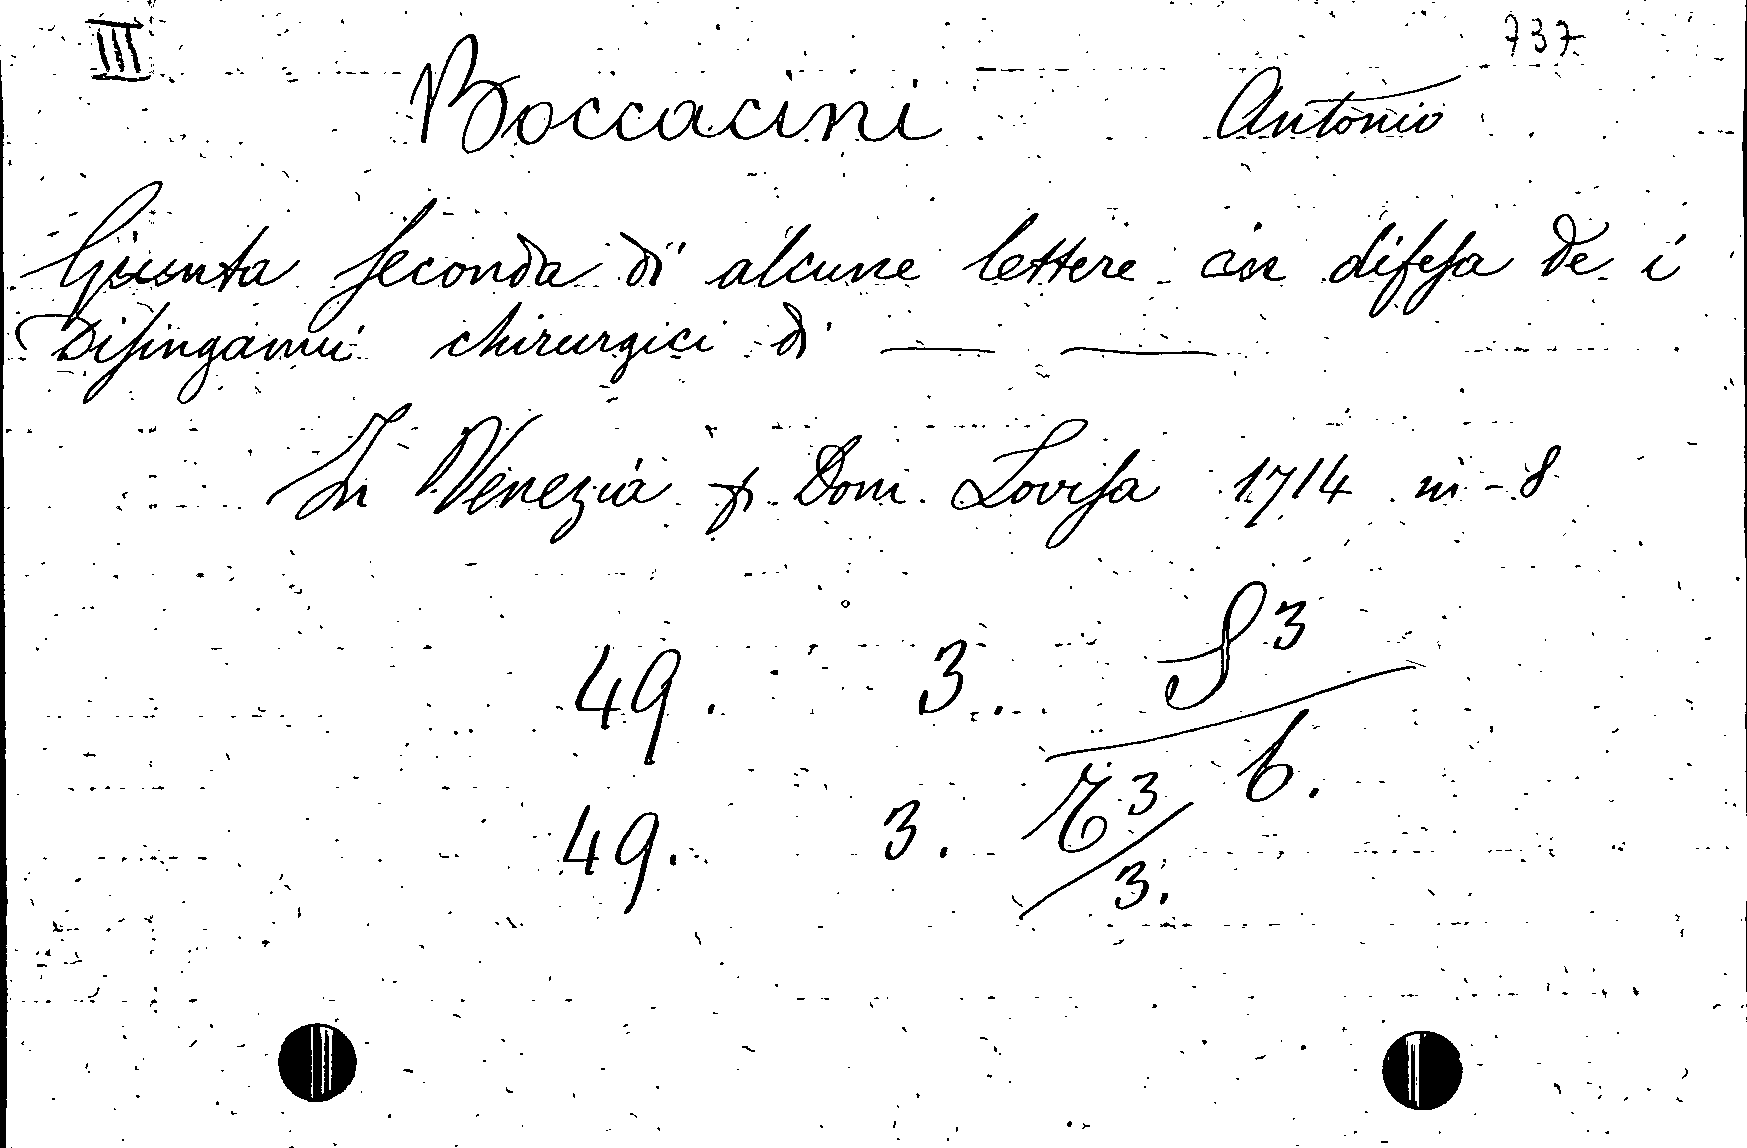 III 737
Boccacini Antonio
Giunta seconda di alcune lettere in difesa de i
Disinganni chirurgici di — —
In Venezia p. Dom. Lovisa 1714 in-8
49. 3. S3
6.
49. 3. 3
3.